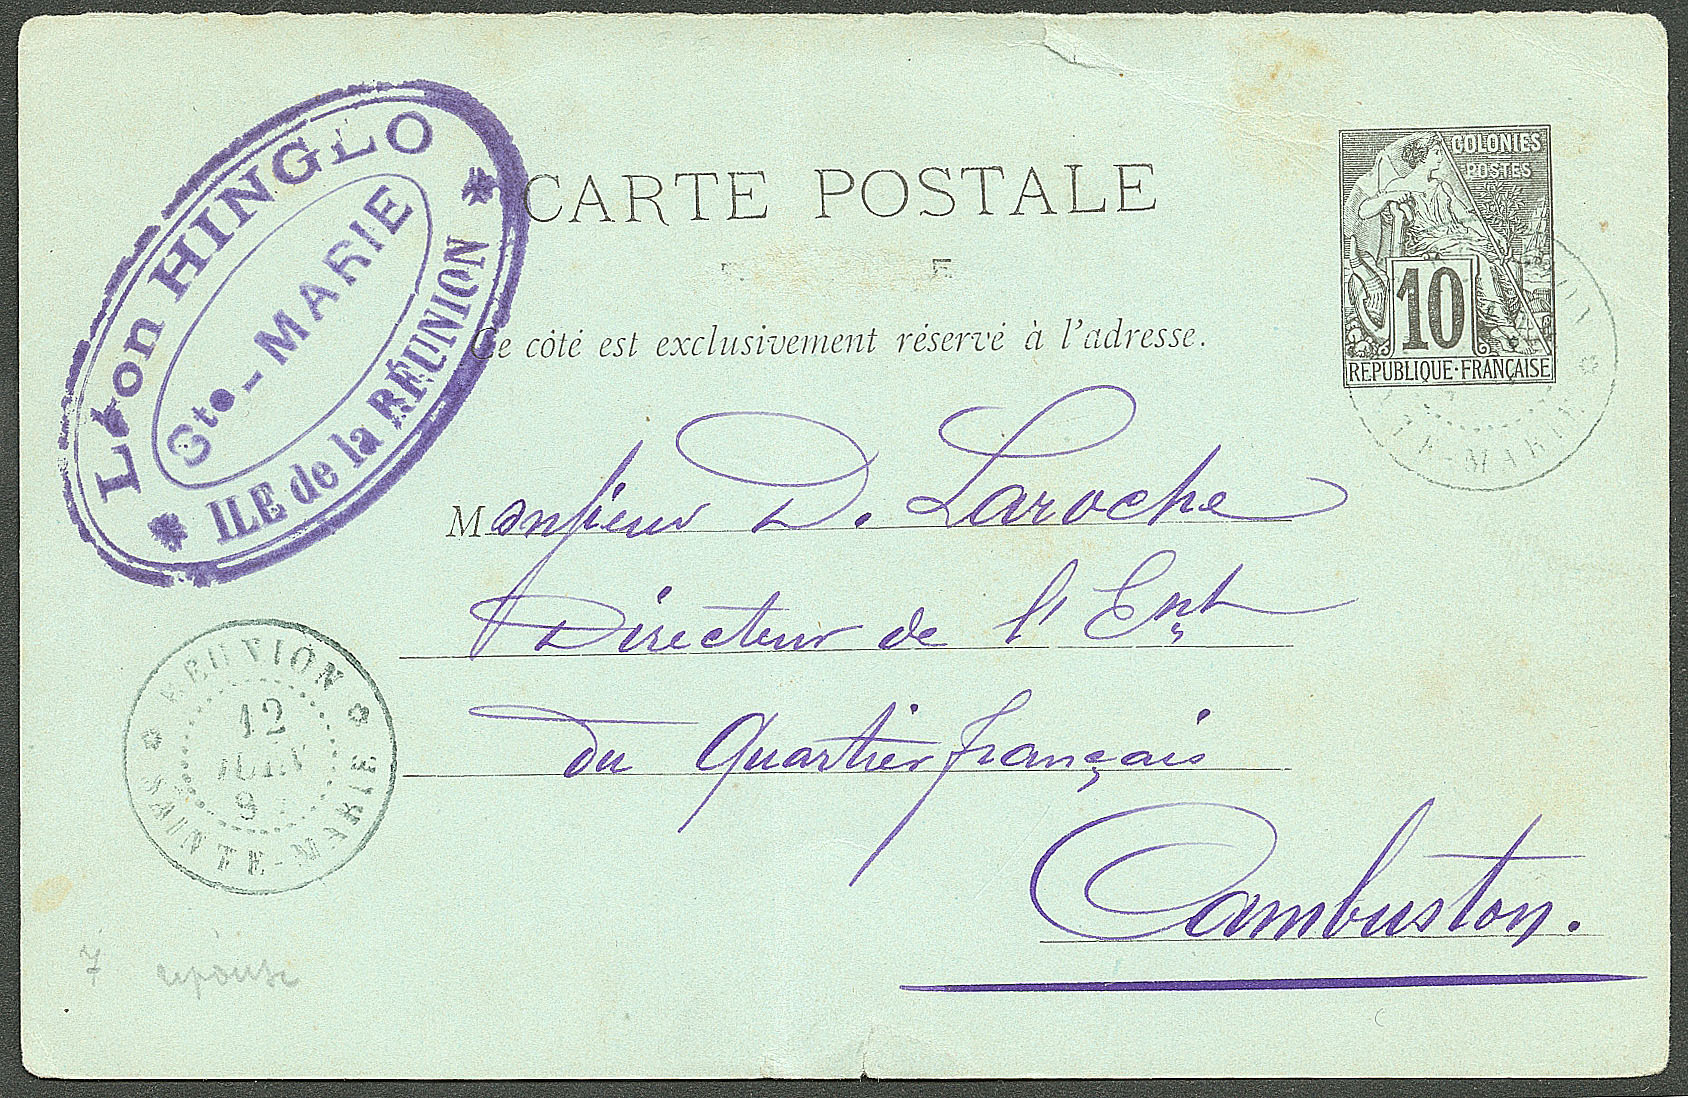 Léon HINGLO
Ste-MARIE
ILE de la RÉUNION
CARTE POSTALE
Ce côté est exclusivement réservé à l'adresse.
COLONIES
POSTES
10
REPUBLIQUE·FRANÇAISE
Monsieur D. Laroche
Directeur de l'Ent
du Quartier français
Cambuston.
REUNION
12
JUIN
SAINTE-MARIE
7 réponse